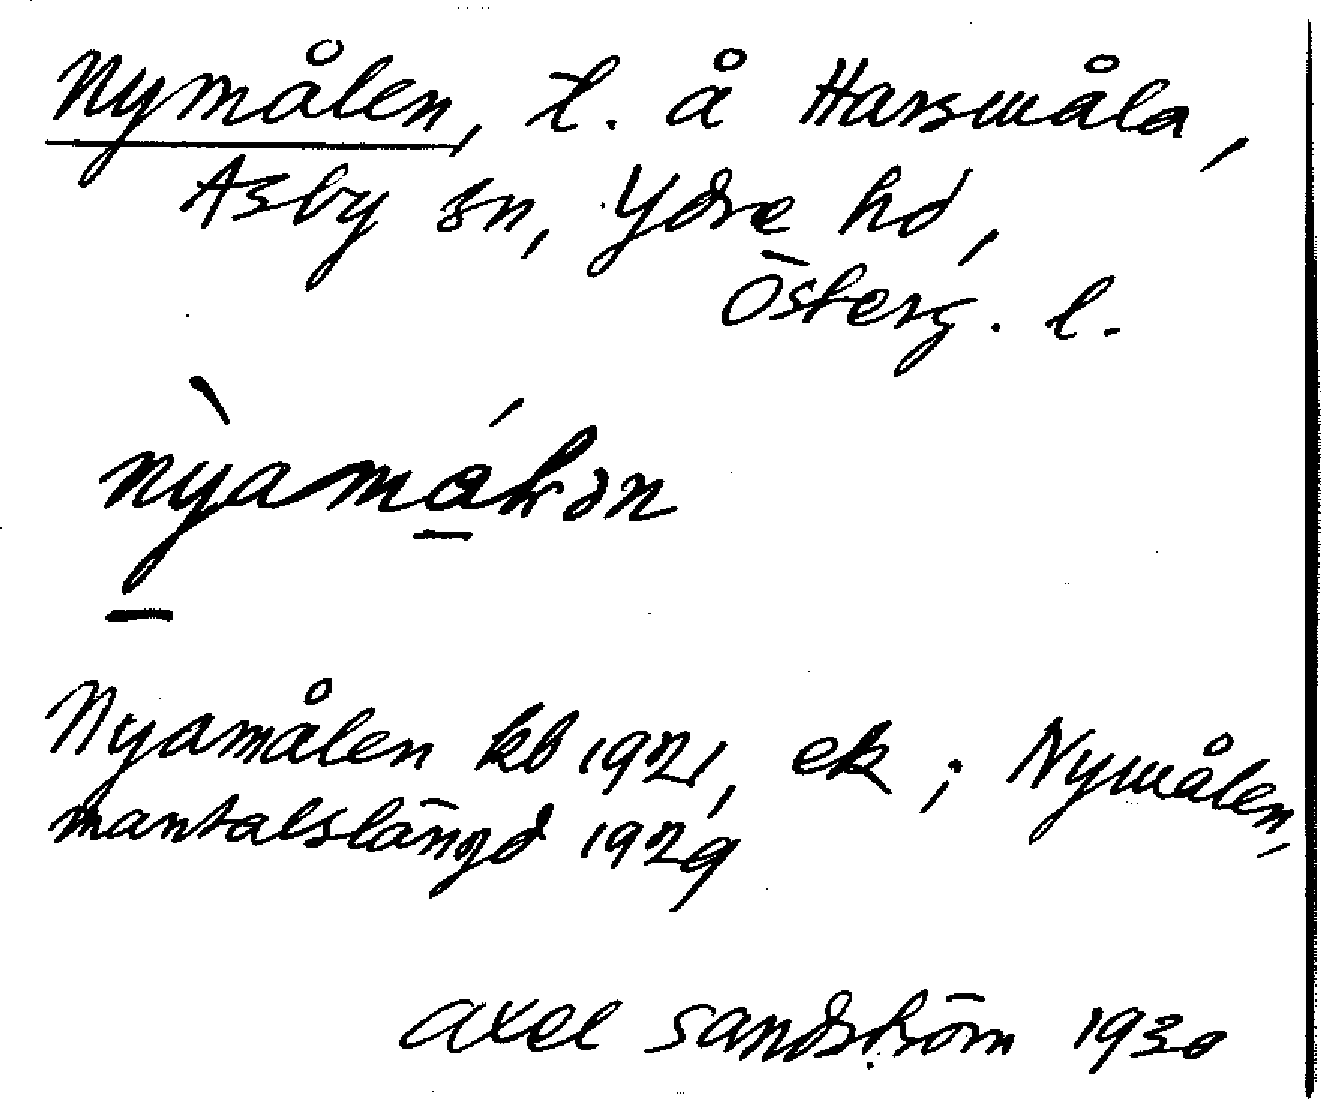 Nymålen, t. å Harsmåla,
Asby sn, Ydre hd,
Österg. l.
Nyamålen kb 1921, ek; Nymålen,
mantalslängd 1929
Axel Sandström 1930